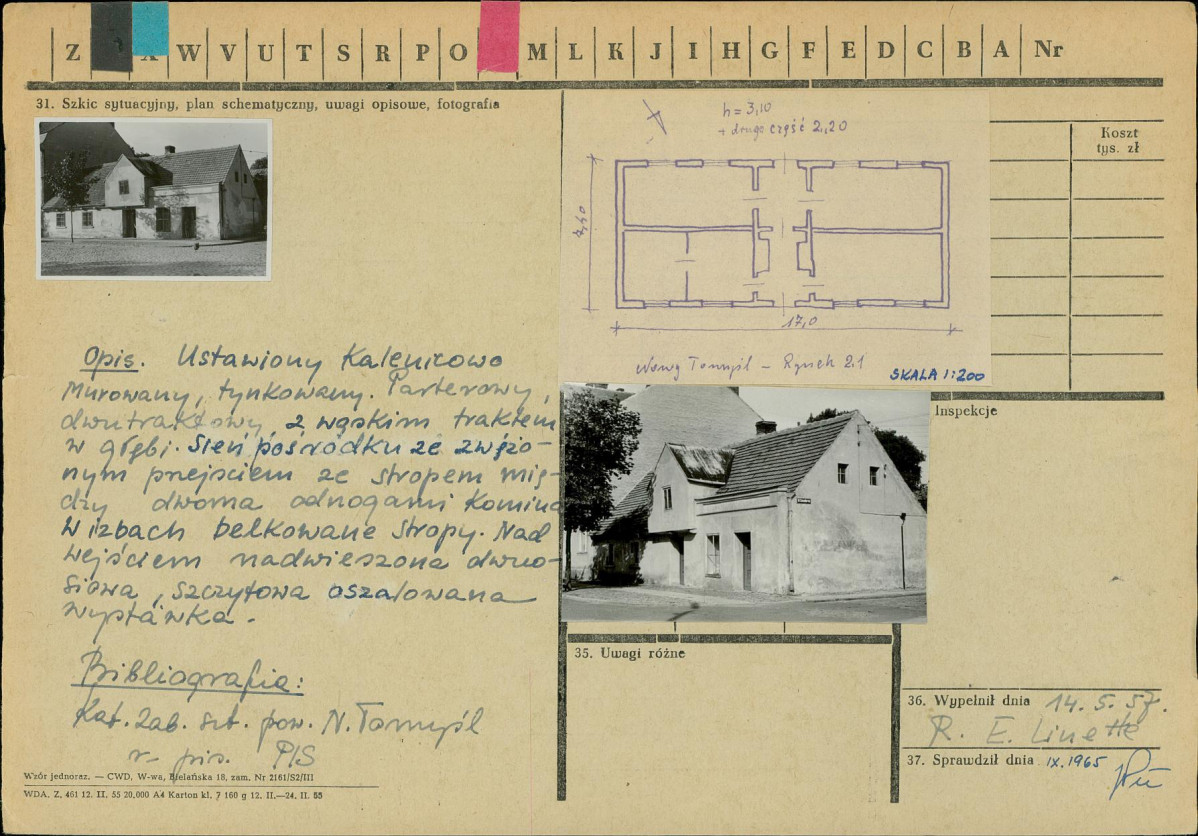 Z W V U T S R P O M L K J I H G F E D C B A Nr
31. Szkic sytuacyjny, plan schematyczny, uwagi opisowe, fotografia
h = 3,10
+ druga część 2,20
17,0
Nowy Tomyśl – Rynek 21
SKALA 1:200
Koszt
tys. zł
Opis. Ustawiony Kalenicowo
Murowany, tynkowany. Parterowy,
dwutraktowy z wąskim traktem
w głębi. Sień pośrodku ze zwężo-
nym przejściem ze stropem mię-
dzy dwoma odnogami Komina
W izbach belkowane stropy. Nad
wejściem nadwieszona dwuo-
siowa, szczytowa oszalowana
wystawka.
Bibliografia:
Kat. Zab. szt. pow. N. Tomyśl
PIS
Wzór jednoraz. — CWD, W-wa, Bielańska 18, zam. Nr 2161/S2/III
WDA. Z. 461 12. II. 55 20.000 A4 Karton kl. 7 160 g 12. II.—24. II. 55
Inspekcje
35. Uwagi różne
36. Wypełnił dnia 14. 5. 57.
R. E. Linette
37. Sprawdził dnia IX. 1965